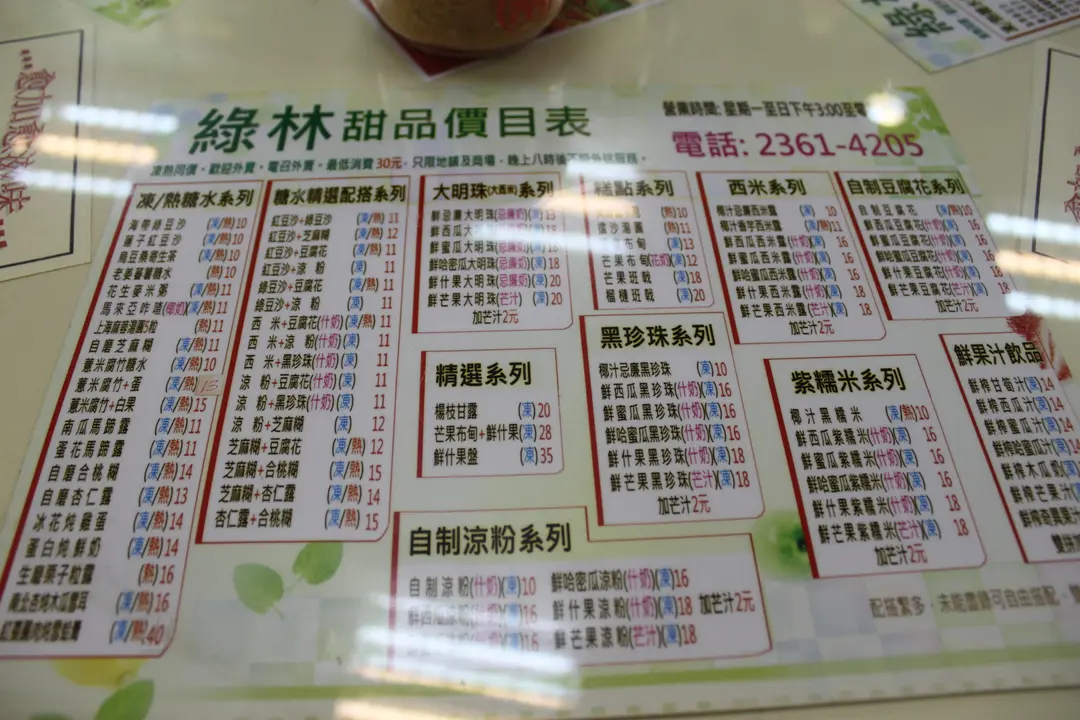 綠林甜品價目表
營業時間: 星期一至日下午3:00至零
電話: 2361-4205
凍熱同價。歡迎外賣。電召外賣。最低消費30元。只限地鋪及商場。晚上八時後
凍/熱糖水系列
海帶綠豆沙 (凍/熱)10
蓮子紅豆沙 (凍/熱)10
烏豆桑寄生茶 (凍/熱)10
老薑蕃薯糖水 (熱)10
花生麥米粥 (凍/熱)11
馬來亞咋喳(椰奶)(凍/熱)11
上海麻蓉湯圓5粒 (熱)11
自磨芝麻糊 (凍/熱)11
薏米腐竹糖水 (凍/熱)10
薏米腐竹+蛋 (凍/熱)13
薏米腐竹+白果 (凍/熱)15
南瓜馬蹄露 (凍/熱)11
蛋花馬蹄露 (凍/熱)11
自磨合桃糊 (凍/熱)14
自磨杏仁露 (凍/熱)13
冰花炖雞蛋 (凍/熱)14
蛋白炖鮮奶 (凍/熱)14
生磨栗子粒露 (熱)16
南北杏炖木瓜雪耳 (凍/熱)16
(凍/熱)40
糖水精選配搭系列
紅豆沙+綠豆沙 (凍/熱) 11
紅豆沙+芝麻糊 (凍/熱) 12
紅豆沙+豆腐花 (凍/熱) 11
紅豆沙+涼 粉 (凍) 11
綠豆沙+豆腐花 (凍/熱) 11
綠豆沙+涼 粉 (凍) 11
西 米+豆腐花(什奶)(凍/熱) 11
西 米+涼 粉(什奶)(凍) 11
西 米+黑珍珠(什奶)(凍) 11
涼 粉+豆腐花(什奶)(凍) 11
涼 粉+黑珍珠(什奶)(凍) 11
涼 粉+芝麻糊 (凍) 12
芝麻糊+豆腐花 (凍/熱) 12
芝麻糊+合桃糊 (凍/熱) 15
芝麻糊+杏仁露 (凍/熱) 14
杏仁露+合桃糊 (凍/熱) 15
大明珠(大西米)系列
鮮忌廉大明珠(忌廉奶)(凍)13
鮮西瓜大明珠(忌廉奶)(凍)18
鮮蜜瓜大明珠(忌廉奶)(凍)18
鮮哈蜜瓜大明珠(忌廉奶)(凍)18
鮮什果大明珠(忌廉奶)(凍)20
鮮芒果大明珠(芒汁) (凍)20
加芒汁2元
精選系列
楊枝甘露 (凍)20
芒果布甸+鮮什果(凍)28
鮮什果盤 (凍)35
糕點系列
(熱)10
湯圓 (熱)11
布甸 (凍)13
芒果布甸(花奶)(凍)12
芒果班戟 (凍)18
榴槤班戟 (凍)20
黑珍珠系列
椰汁忌廉黑珍珠 (凍)10
鮮西瓜黑珍珠(什奶)(凍)16
鮮蜜瓜黑珍珠(什奶)(凍)16
鮮哈蜜瓜黑珍珠(什奶)(凍)16
鮮什果黑珍珠(什奶)(凍)18
鮮芒果黑珍珠(芒汁)(凍)18
加芒汁2元
西米系列
椰汁忌廉西米露 (凍) 10
椰汁香芋西米露 (凍) 11
鮮西瓜西米露(什奶)(凍) 16
鮮蜜瓜西米露(什奶)(凍) 16
鮮哈蜜瓜西米露(什奶)(凍) 16
鮮什果西米露(什奶)(凍) 18
鮮芒果西米露(芒汁)(凍) 18
加芒汁2元
紫糯米系列
椰汁黑糯米 (凍/熱)10
鮮西瓜紫糯米(什奶)(凍) 16
鮮蜜瓜紫糯米(什奶)(凍) 16
鮮哈蜜瓜紫糯米(什奶)(凍) 16
鮮什果紫糯米(什奶)(凍) 18
鮮芒果紫糯米(芒汁)(凍) 18
加芒汁2元
自制豆腐花系列
自制豆腐花 (凍/熱)10
鮮西瓜豆腐花(什奶)(凍)16
鮮蜜瓜豆腐花(什奶)(凍)16
鮮哈蜜瓜豆腐花(什奶)(凍)16
鮮什果豆腐花(什奶)(凍)18
鮮芒果豆腐花(芒汁)(凍)18
加芒汁2元
鮮果汁飲品
鮮榨甘筍汁(凍)14
鮮榨西瓜汁(凍)14
鮮榨蜜瓜汁(凍)14
鮮榨哈蜜瓜汁(凍)
鮮榨木瓜奶
鮮榨芒果汁
自制涼粉系列
自制涼粉(什奶)(凍)10
鮮西瓜涼粉(什奶)(凍)16
(凍)16
鮮哈密瓜涼粉(什奶)(凍)16
鮮什果涼粉(什奶)(凍)18 加芒汁2元
鮮芒果涼粉(芒汁)(凍)18
配搭繁多．未能盡錄可自由搭配．